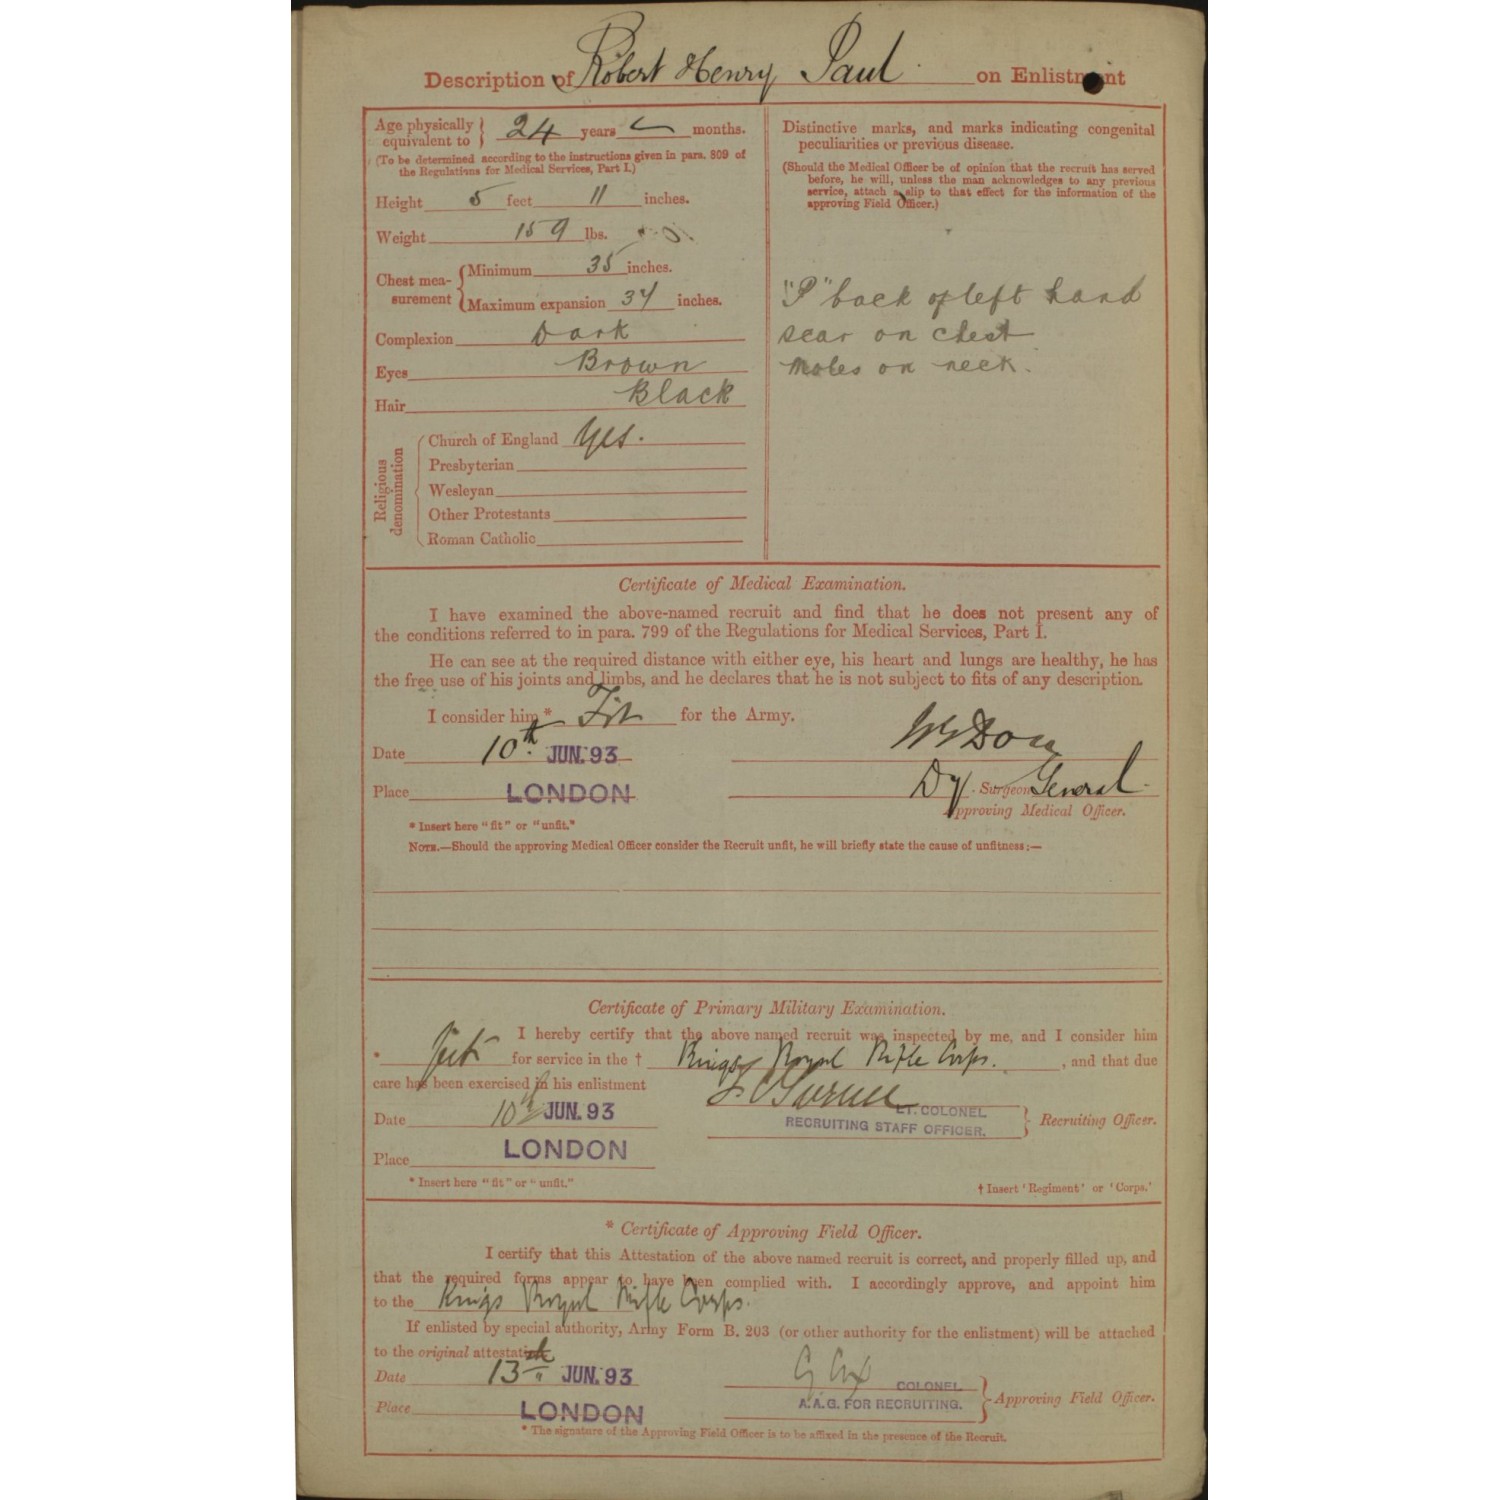 Description of Robert Henry Paul on Enlistment
Age physically equivalent to } 24 years — months.
(To be determined according to the instructions given in para. 809 of
the Regulations for Medical Services, Part I.)
Height 5 feet 11 inches.
Weight 159 lbs.
Chest measurement { Minimum 35 inches.
Maximum expansion 37 inches.
Complexion Dark
Eyes Brown
Hair Black
Religious denomination
Church of England Yes.
Presbyterian
Wesleyan
Other Protestants
Roman Catholic
Distinctive marks, and marks indicating congenital
peculiarities or previous disease.
(Should the Medical Officer be of opinion that the recruit has served
before, he will, unless the man acknowledges to any previous
service, attach a slip to that effect for the information of the
approving Field Officer.)
"P" back of left hand
scar on chest
moles on neck.
Certificate of Medical Examination.
I have examined the above-named recruit and find that he does not present any of
the conditions referred to in para. 799 of the Regulations for Medical Services, Part I.
He can see at the required distance with either eye, his heart and lungs are healthy, he has
the free use of his joints and limbs, and he declares that he is not subject to fits of any description.
I consider him * Fit for the Army.
Date 10th JUN. 93
Place LONDON
Dy. Surgeon General
Approving Medical Officer.
* Insert here "fit" or "unfit."
NOTE.—Should the approving Medical Officer consider the Recruit unfit, he will briefly state the cause of unfitness:—
Certificate of Primary Military Examination.
I hereby certify that the above named recruit was inspected by me, and I consider him
* fit for service in the † Kings Royal Rifle Corps. , and that due
care has been exercised in his enlistment
Date 10th JUN. 93
LT. COLONEL
RECRUITING STAFF OFFICER.
} Recruiting Officer.
Place LONDON
* Insert here "fit" or "unfit."
† Insert 'Regiment' or 'Corps.'
* Certificate of Approving Field Officer.
I certify that this Attestation of the above named recruit is correct, and properly filled up, and
that the required forms appear to have been complied with. I accordingly approve, and appoint him
to the Kings Royal Rifle Corps.
If enlisted by special authority, Army Form B. 203 (or other authority for the enlistment) will be attached
to the original attestation.
Date 13th JUN. 93
Place LONDON
G Cox COLONEL
A.A.G. FOR RECRUITING.
} Approving Field Officer.
* The signature of the Approving Field Officer is to be affixed in the presence of the Recruit.